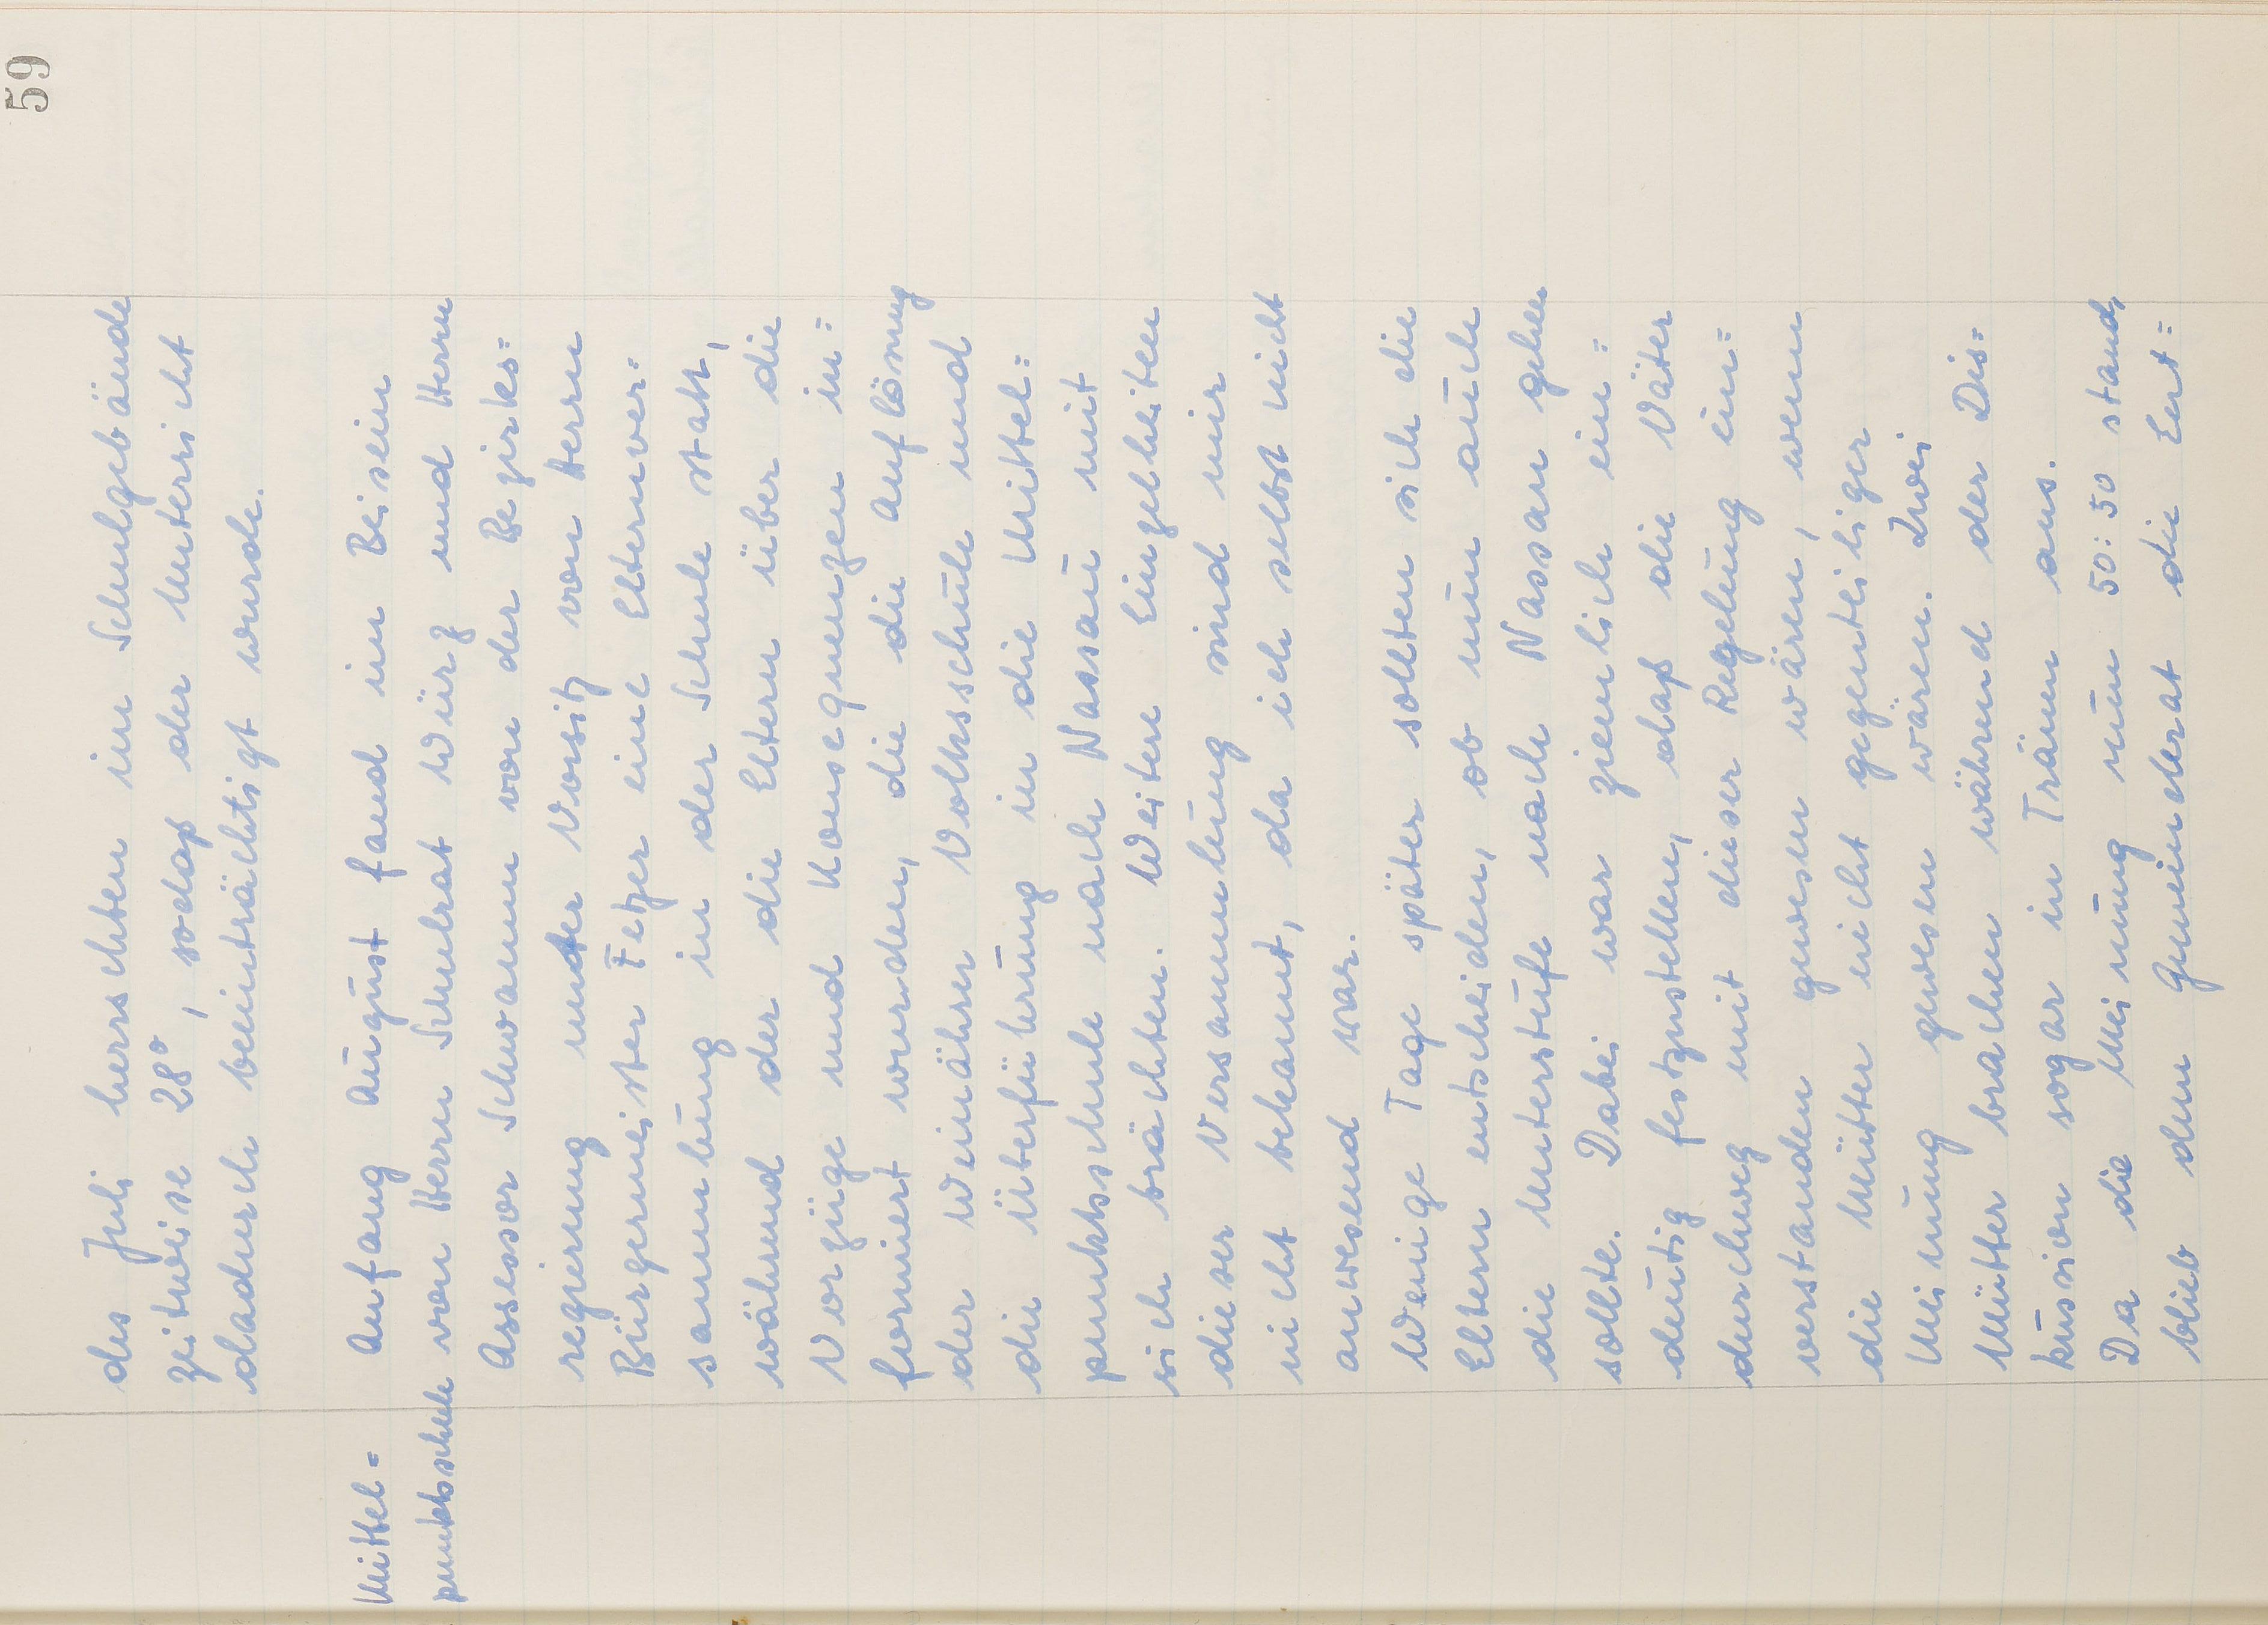 59
des Juli herrschten im Schulgebäude
zeitweise 28°, sodaß der Unterricht
dadurch beeinträchtigt wurde.
Mittel=
punktschule
Anfang August fand im Beisein
von Herrn Schulrat Würz und Herrn
Assessor Schwamm von der Bezirks=
regierung unter Vorsitz von Herrn
Bürgermeister Fetzer eine Elternver=
sammlung in der Schule statt,
während der die Eltern über die
Vorzüge und Konsequenzen in=
formiert wurden, die die Auflösung
der Weinährer Volksschule und
die Überführung in die Mittel=
punktsschule nach Nassau mit
sich brächten. Weitere Einzelheiten
dieser Versammlung sind mir
nicht bekannt, da ich selbst nicht
anwesend war.
Wenige Tage später sollten sich die
Eltern entscheiden, ob nun auch
die Unterstufe nach Nassau gehen
sollte. Dabei war ziemlich ein=
deutig festzustellen, daß die Väter
durchweg mit dieser Regelung ein=
verstanden gewesen wären, wenn
die Mütter nicht gegenteiliger
Meinung gewesen wären. Zwei
Mütter brachen während der Dis=
kussion sogar in Tränen aus.
Da die Meinung nun 50:50 stand,
blieb dem Gemeinderat die Ent=